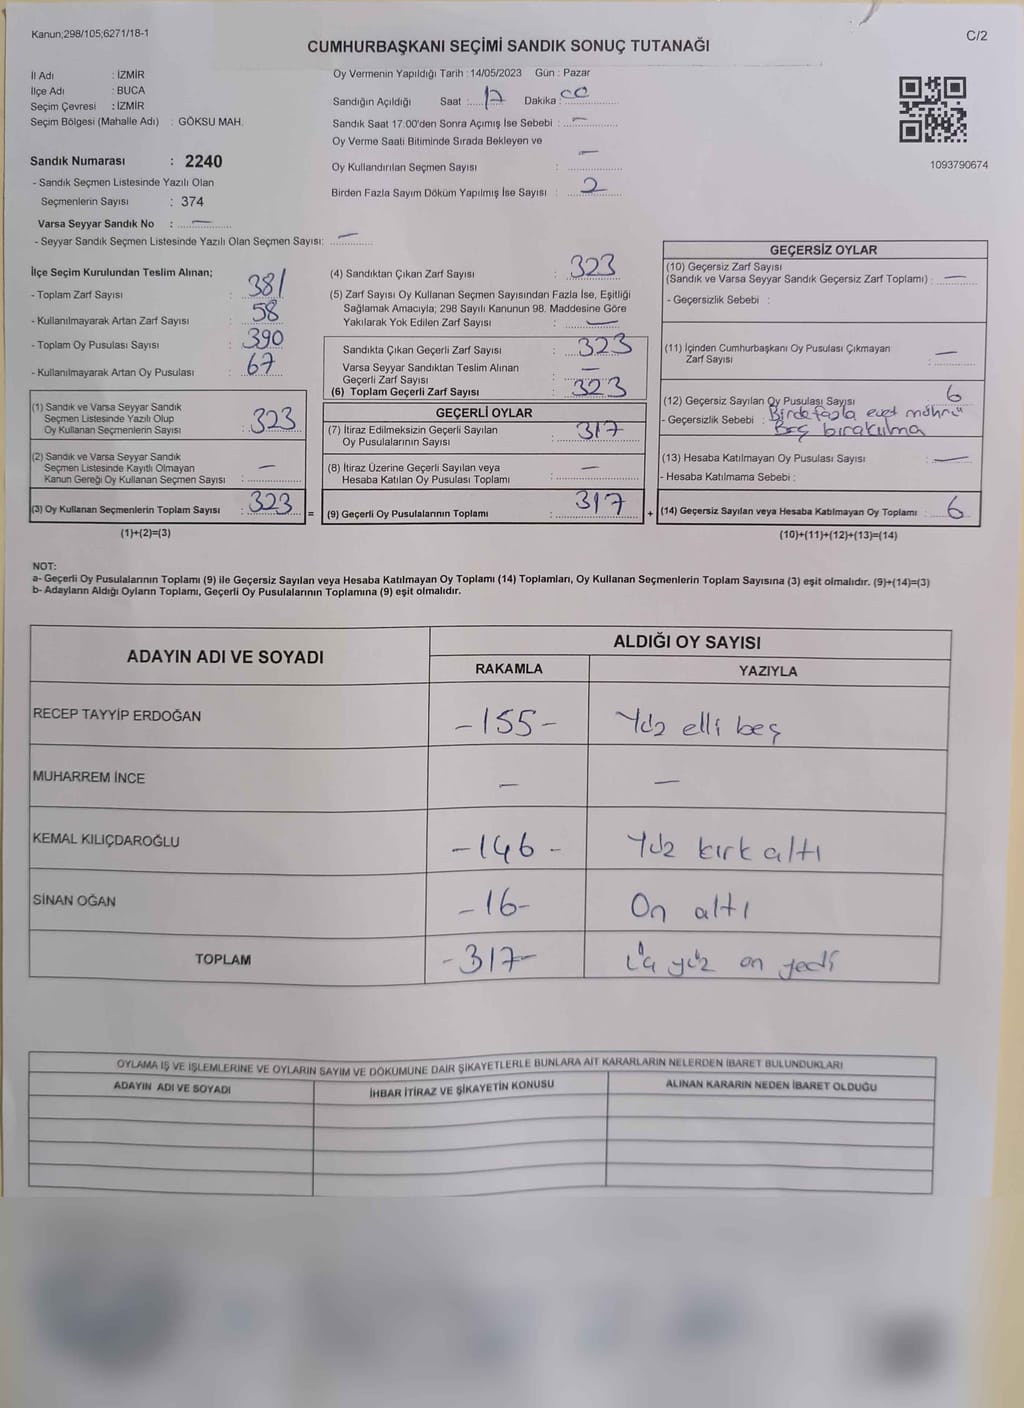 Kanun;298/105;6271/18-1
C/2
CUMHURBAŞKANI SEÇİMİ SANDIK SONUÇ TUTANAĞI
İl Adı : İZMİR
İlçe Adı : BUCA
Seçim Çevresi : İZMİR
Seçim Bölgesi (Mahalle Adı) : GÖKSU MAH.
Sandık Numarası : 2240
- Sandık Seçmen Listesinde Yazılı Olan
Seçmenlerin Sayısı : 374
Varsa Seyyar Sandık No : —
- Seyyar Sandık Seçmen Listesinde Yazılı Olan Seçmen Sayısı: —
Oy Vermenin Yapıldığı Tarih : 14/05/2023 Gün : Pazar
Sandığın Açıldığı Saat : 17 Dakika : 00
Sandık Saat 17:00'den Sonra Açımış İse Sebebi : —
Oy Verme Saati Bitiminde Sırada Bekleyen ve
Oy Kullandırılan Seçmen Sayısı : —
Birden Fazla Sayım Döküm Yapılmış İse Sayısı : 2
1093790674
İlçe Seçim Kurulundan Teslim Alınan;
- Toplam Zarf Sayısı : 381
- Kullanılmayarak Artan Zarf Sayısı : 58
- Toplam Oy Pusulası Sayısı : 390
- Kullanılmayarak Artan Oy Pusulası : 67
(1) Sandık ve Varsa Seyyar Sandık
Seçmen Listesinde Yazılı Olup
Oy Kullanan Seçmenlerin Sayısı : 323
(2) Sandık ve Varsa Seyyar Sandık
Seçmen Listesinde Kayıtlı Olmayan
Kanun Gereği Oy Kullanan Seçmen Sayısı : —
(3) Oy Kullanan Seçmenlerin Toplam Sayısı : 323 =
(1)+(2)=(3)
(4) Sandıktan Çıkan Zarf Sayısı : 323
(5) Zarf Sayısı Oy Kullanan Seçmen Sayısından Fazla İse, Eşitliği
Sağlamak Amacıyla; 298 Sayılı Kanunun 98. Maddesine Göre
Yakılarak Yok Edilen Zarf Sayısı : —
Sandıkta Çıkan Geçerli Zarf Sayısı : 323
Varsa Seyyar Sandıktan Teslim Alınan
Geçerli Zarf Sayısı : —
(6) Toplam Geçerli Zarf Sayısı : 323
GEÇERLİ OYLAR
(7) İtiraz Edilmeksizin Geçerli Sayılan
Oy Pusulalarının Sayısı : 317
(8) İtiraz Üzerine Geçerli Sayılan veya
Hesaba Katılan Oy Pusulası Toplamı : —
(9) Geçerli Oy Pusulalarının Toplamı : 317 +
GEÇERSİZ OYLAR
(10) Geçersiz Zarf Sayısı
(Sandık ve Varsa Seyyar Sandık Geçersiz Zarf Toplamı) : —
- Geçersizlik Sebebi :
(11) İçinden Cumhurbaşkanı Oy Pusulası Çıkmayan
Zarf Sayısı : —
(12) Geçersiz Sayılan Oy Pusulası Sayısı 6
- Geçersizlik Sebebi : Birde fazla evet möhrü
Boş bırakılma
(13) Hesaba Katılmayan Oy Pusulası Sayısı : —
- Hesaba Katılmama Sebebi :
(14) Geçersiz Sayılan veya Hesaba Katılmayan Oy Toplamı : 6
(10)+(11)+(12)+(13)=(14)
NOT:
a- Geçerli Oy Pusulalarının Toplamı (9) ile Geçersiz Sayılan veya Hesaba Katılmayan Oy Toplamı (14) Toplamları, Oy Kullanan Seçmenlerin Toplam Sayısına (3) eşit olmalıdır. (9)+(14)=(3)
b- Adayların Aldığı Oyların Toplamı, Geçerli Oy Pusulalarının Toplamına (9) eşit olmalıdır.
ADAYIN ADI VE SOYADI
ALDIĞI OY SAYISI
RAKAMLA YAZIYLA
RECEP TAYYİP ERDOĞAN -155- Yüz elli beş
MUHARREM İNCE — —
KEMAL KILIÇDAROĞLU -146- Yüz kırk altı
SİNAN OĞAN -16- On altı
TOPLAM -317- Üç yüz on yedi
OYLAMA İŞ VE İŞLEMLERİNE VE OYLARIN SAYIM VE DÖKÜMÜNE DAİR ŞİKAYETLERLE BUNLARA AİT KARARLARIN NELERDEN İBARET BULUNDUKLARI
ADAYIN ADI VE SOYADI İHBAR İTİRAZ VE ŞİKAYETİN KONUSU ALINAN KARARIN NEDEN İBARET OLDUĞU